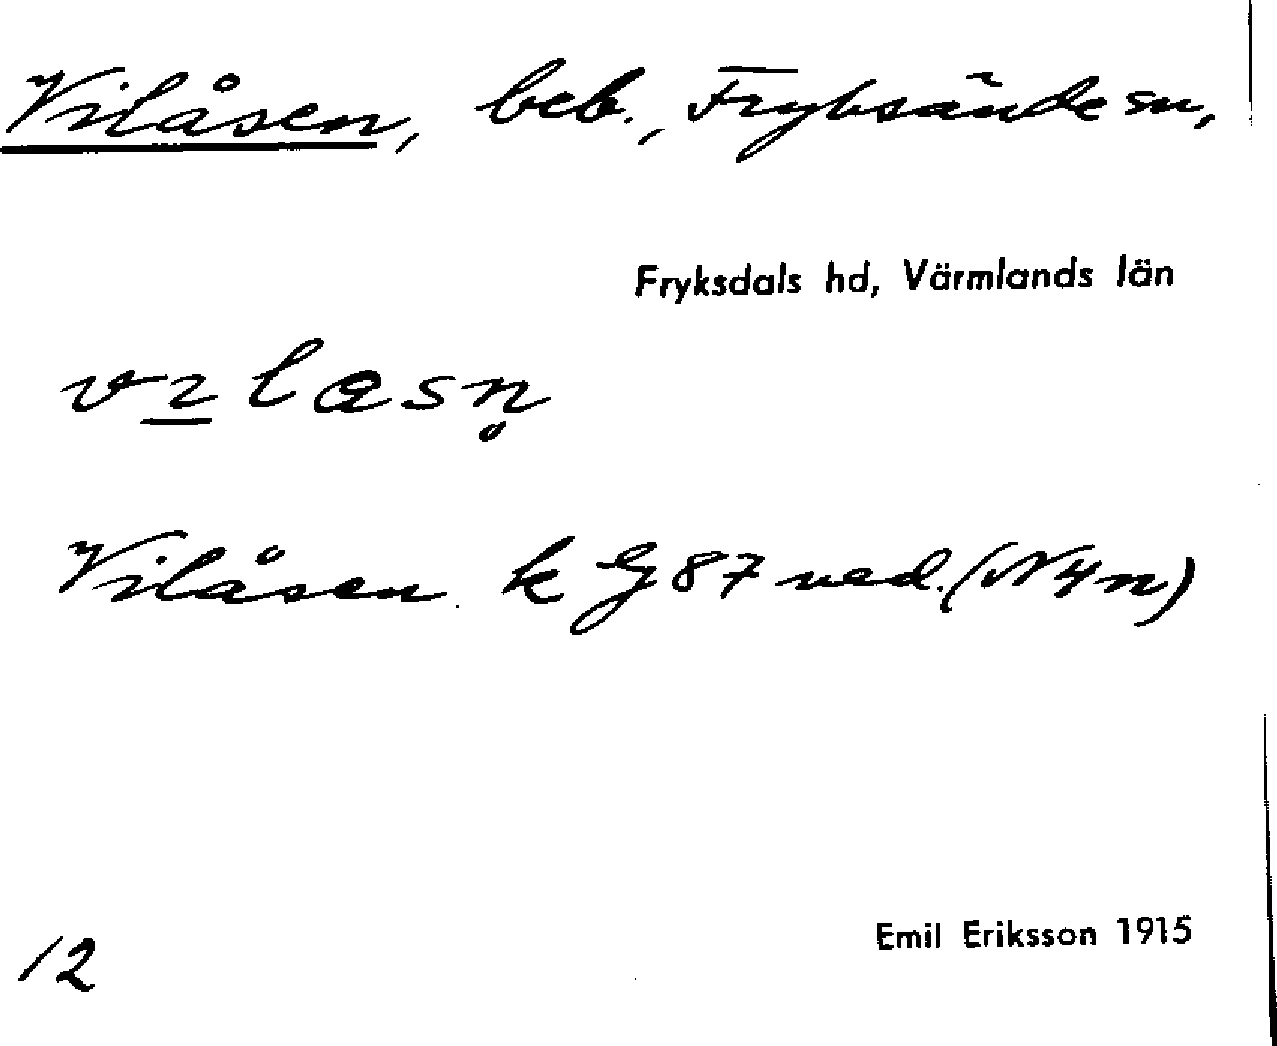 Vilåsen, beb., Fryksände sn,
Fryksdals hd, Värmlands län
Vilåsen k G 87 ned. (N4n)
12
Emil Eriksson 1915